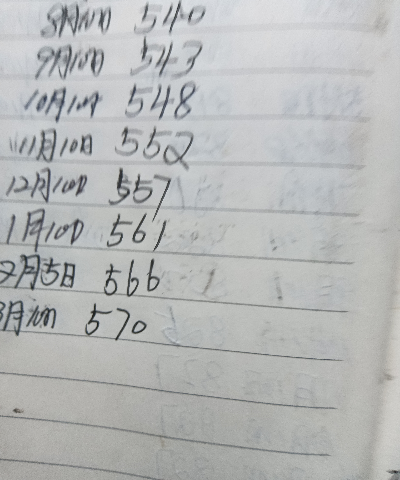 8月10日 540
9月10日 543
10月10日 548
11月10日 552
12月10日 557
1月10日 561
2月5日 566
3月10日 570